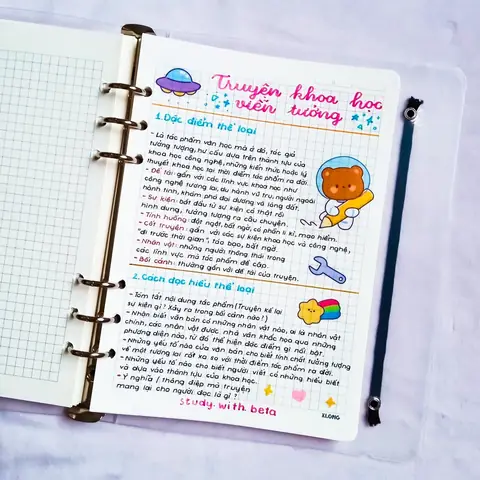 Truyện khoa học
viễn tưởng
1. Đặc điểm thể loại
- Là tác phẩm văn học mà ở đó, tác giả
tưởng tượng, hư cấu dựa trên thành tựu của
khoa học công nghệ, những kiến thức hoặc lý
thuyết khoa học tại thời điểm tác phẩm ra đời.
- Đề tài: gắn với các lĩnh vực khoa học như
công nghệ tương lai, du hành vũ trụ, người ngoài
hành tinh, khám phá đại dương và lòng đất.
- Sự kiện: bắt đầu từ sự kiện có thật rồi
hình dung, tưởng tượng ra câu chuyện.
- Tình huống: đột ngột, bất ngờ, có phần li kì, mạo hiểm.
- Cốt truyện: gắn với các sự kiện khoa học và công nghệ,
"đi trước thời gian", táo bạo, bất ngờ.
- Nhân vật: những người thông thái trong
các lĩnh vực mà tác phẩm đề cập.
- Bối cảnh: thường gắn với đề tài của truyện.
2. Cách đọc hiểu thể loại
- Tóm tắt nội dung tác phẩm (Truyện kể lại
sự kiện gì? Xảy ra trong bối cảnh nào?)
- Nhận biết văn bản có những nhân vật nào, ai là nhân vật
chính, các nhân vật được nhà văn khắc họa qua những
phương diện nào, từ đó thể hiện đặc điểm gì nổi bật.
- Những yếu tố nào của văn bản cho biết tính chất tưởng tượng
về một tương lai rất xa so với thời điểm tác phẩm ra đời.
- Những yếu tố nào cho biết người viết có những hiểu biết
và dựa vào thành tựu của khoa học.
- Ý nghĩa / thông điệp mà truyện
mang lại cho người đọc là gì?
study with beta
KLONG